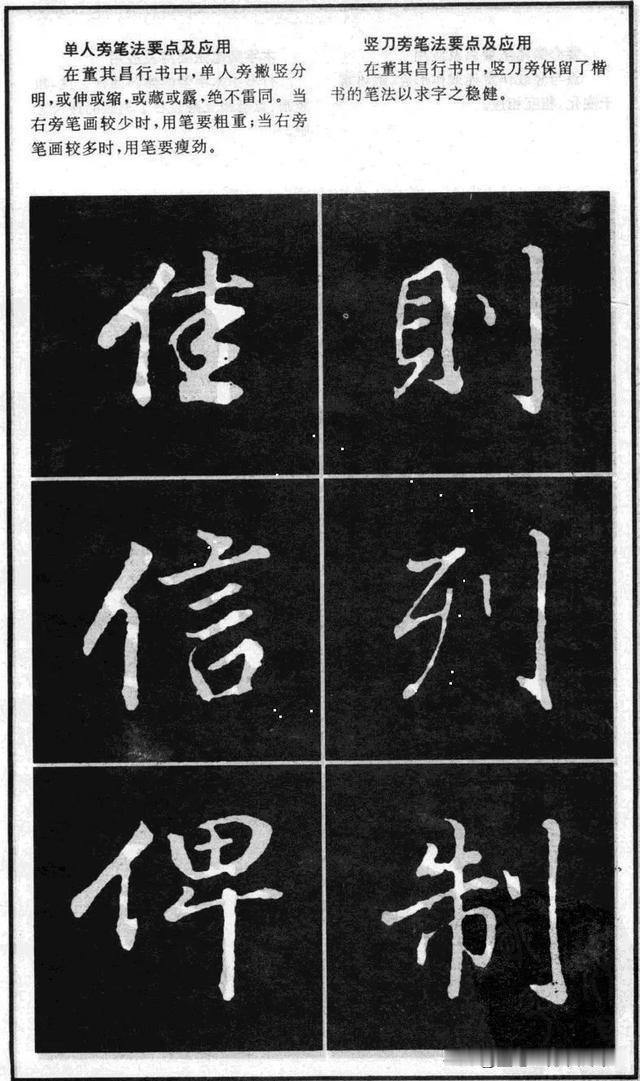 单人旁笔法要点及应用
在董其昌行书中，单人旁撇竖分
明，或伸或缩，或藏或露，绝不雷同。当
右旁笔画较少时，用笔要粗重；当右旁
笔画较多时，用笔要瘦劲。
竖刀旁笔法要点及应用
在董其昌行书中，竖刀旁保留了楷
书的笔法以求字之稳健。
佳
信
俾
則
列
制